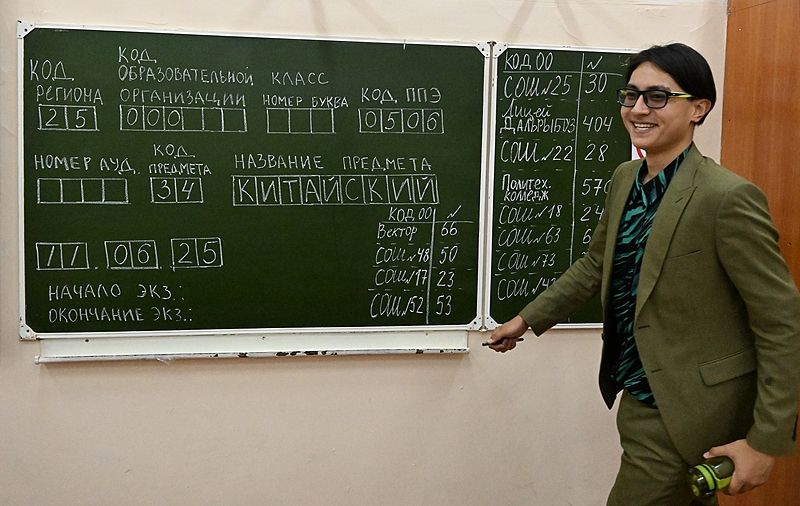 КОД
РЕГИОНА
25
КОД
ОБРАЗОВАТЕЛЬНОЙ
ОРГАНИЗАЦИИ
000
КЛАСС
НОМЕР БУКВА
КОД ППЭ
0506
НОМЕР АУД.
КОД
ПРЕДМЕТА
34
НАЗВАНИЕ ПРЕДМЕТА
КИТАЙСКИЙ
11.06.25
НАЧАЛО ЭКЗ.:
ОКОНЧАНИЕ ЭКЗ.:
КОД ОО N
Вектор 66
СОШ №48 50
СОШ №17 23
СОШ №52 53
КОД ОО N
СОШ №25 30
Лицей
Дальрыбвтуз 404
СОШ №22 28
Политех.
колледж
СОШ №18
СОШ №63
СОШ №73